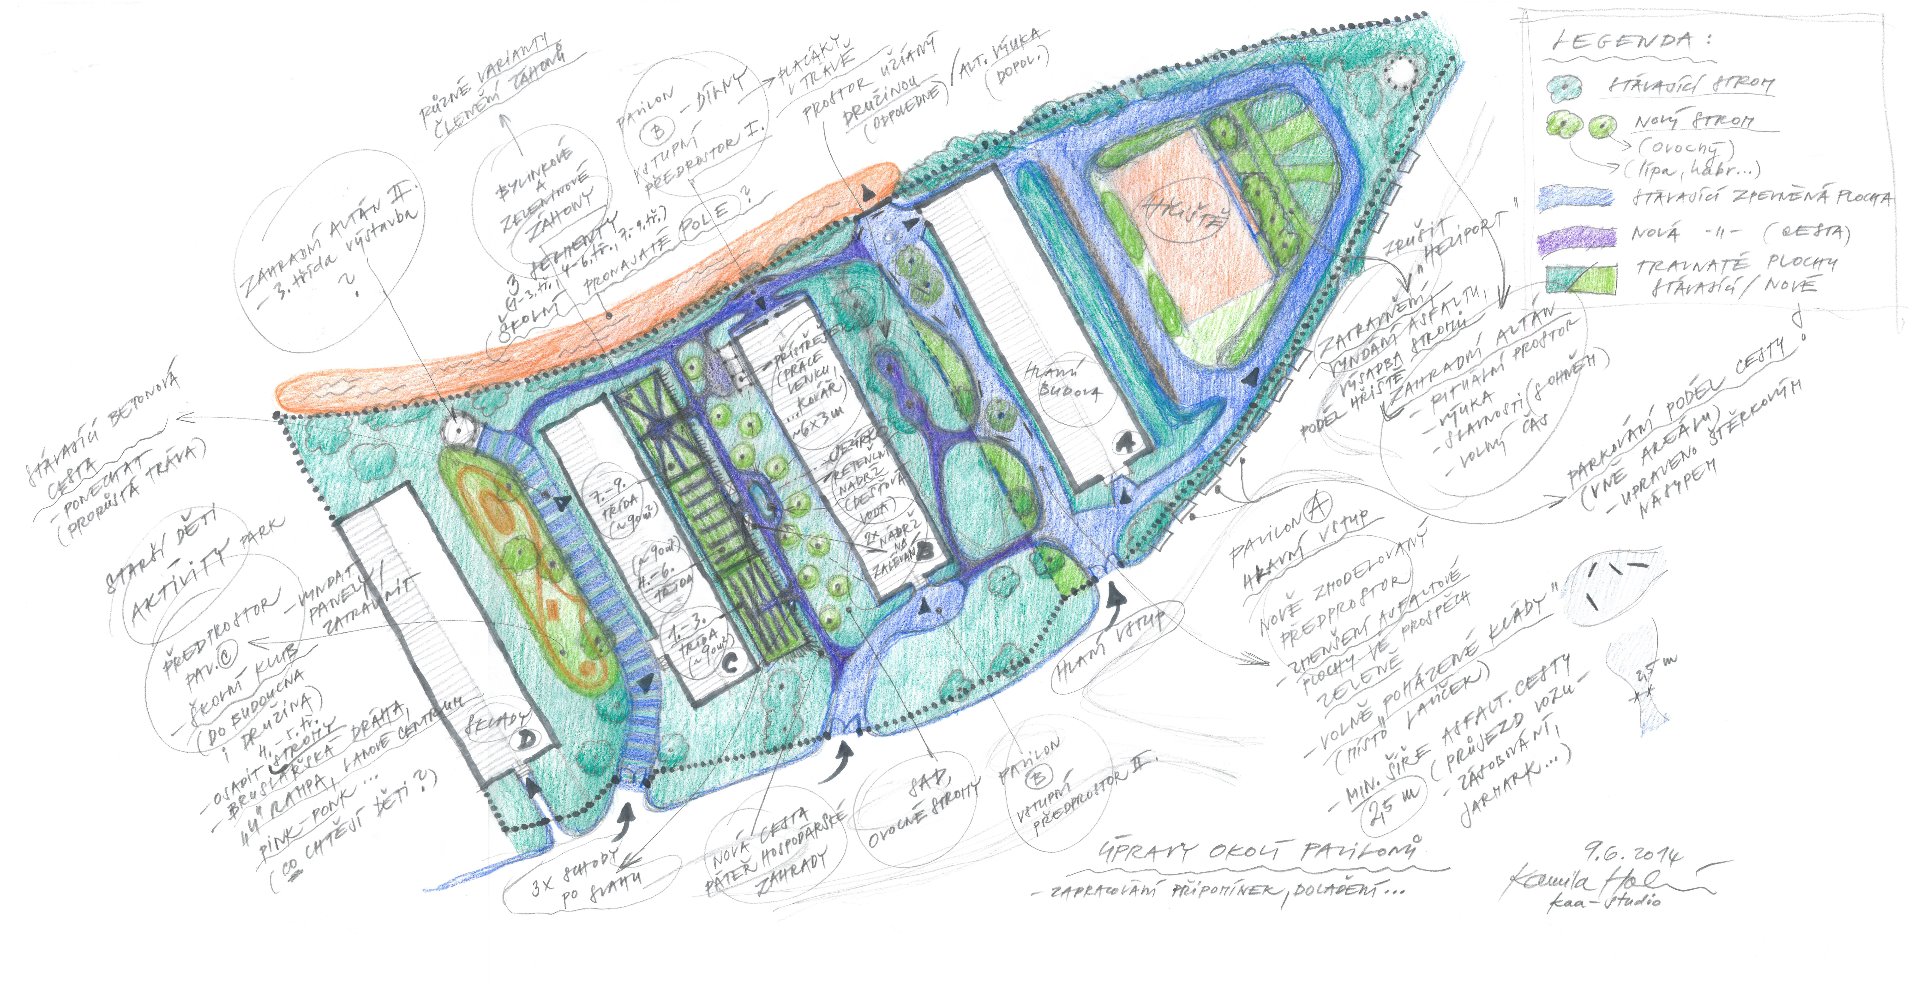 LEGENDA:
STÁVAJÍCÍ STROM
NOVÝ STROM
(OVOCNÝ)
(lípa, habr...)
STÁVAJÍCÍ ZPEVNĚNÁ PLOCHA
NOVÁ -"- (CESTA)
TRAVNATÉ PLOCHY
STÁVAJÍCÍ / NOVÉ
RŮZNÉ VARIANTY
ČLENĚNÍ ZÁHONŮ
PAVILON
B - DÍLNY
VSTUPNÍ
PŘEDPROSTOR I.
V TRÁVĚ
PROSTOR UŽÍVANÝ
DRUŽINOU
(ODPOLEDNE)
/ ALT. VÝUKA
(DOPOL.)
BYLINKOVÉ
A
ZELENINOVÉ
ZÁHONY
3 SEGMENTY
(1.-3.tř., 4.-6.tř., 7.-9.tř.)
ŠKOLNÍ PRONAJATÉ POLE?
ZAHRADNÍ ALTÁN II.
- 3. třída výstavba
?
STÁVAJÍCÍ BETONOVÁ
CESTA
- PONECHAT
(PRORŮSTÁ TRÁVA)
STARŠÍ DĚTI
AKTIVITY PARK
PŘEDPROSTOR
PAV. C
- VYNDAT
PANELY /
ZATRAVNIT
- ŠKOLNÍ KLUB
(DO BUDOUCNA
I DRUŽINA)
4.-5.tř.
- OSADIT STROMY
- BRUSLAŘSKÁ DRÁHA,
"U" RAMPA, LANOVÉ CENTRUM
PINK-PONK...
(CO CHTĚJÍ DĚTI?)
SKLADY
D
7.-9.
TŘÍDA
(~90m²)
(~90m²)
4.-6.
TŘÍDA
1.-3.
TŘÍDA
(~90m²)
C
PŘÍSTŘEŠ.
(PRÁCE
VENKU,
...KOVÁŘ)
~6x3m
- JEZÍRKO
RETENČNÍ
NÁDRŽ
(DEŠŤOVÁ
VODA)
2x NÁDRŽ
NA
ZALÉVÁNÍ
B
HLAVNÍ
BUDOVA
A
HŘIŠTĚ
ZRUŠIT
"HELIPORT"
ZATRAVNĚNÍ
VYNDÁNÍ ASFALTU,
VÝSADBA STROMŮ
PODÉL HŘIŠTĚ
ZAHRADNÍ ALTÁN
- RITUÁLNÍ PROSTOR
- VÝUKA
- SLAVNOSTI (S OHNĚM)
- VOLNÝ ČAS
PARKOVÁNÍ PODÉL CESTY
(VNĚ AREÁLU)
- UPRAVENO ŠTĚRKOVÝM
NÁSYPEM
PAVILON A
HLAVNÍ VSTUP
NOVĚ ZMODELOVANÝ
PŘEDPROSTOR
- ZMENŠENÍ ASFALTOVÉ
PLOCHY VE PROSPĚCH
ZELENĚ
- VOLNĚ POHÁZENÉ KLÁDY"
(MÍSTO LAVIČEK)
- MIN. ŠÍŘE ASFALT. CESTY
2,5 m
(PRŮJEZD VOZU -
- ZÁSOBOVÁNÍ,
JARMARK...)
2,5 m
HLAVNÍ VSTUP
3X SCHODY
PO SVAHU
NOVÁ CESTA
PÁTEŘ HOSPODÁŘSKÉ
ZAHRADY
SAD,
OVOCNÉ STROMY
PAVILON
B
VSTUPNÍ
PŘEDPROSTOR II.
ÚPRAVY OKOLÍ PAVILONŮ
- ZAPRACOVÁNÍ PŘIPOMÍNEK, DOLADĚNÍ...
9.6.2014
kaa-studio